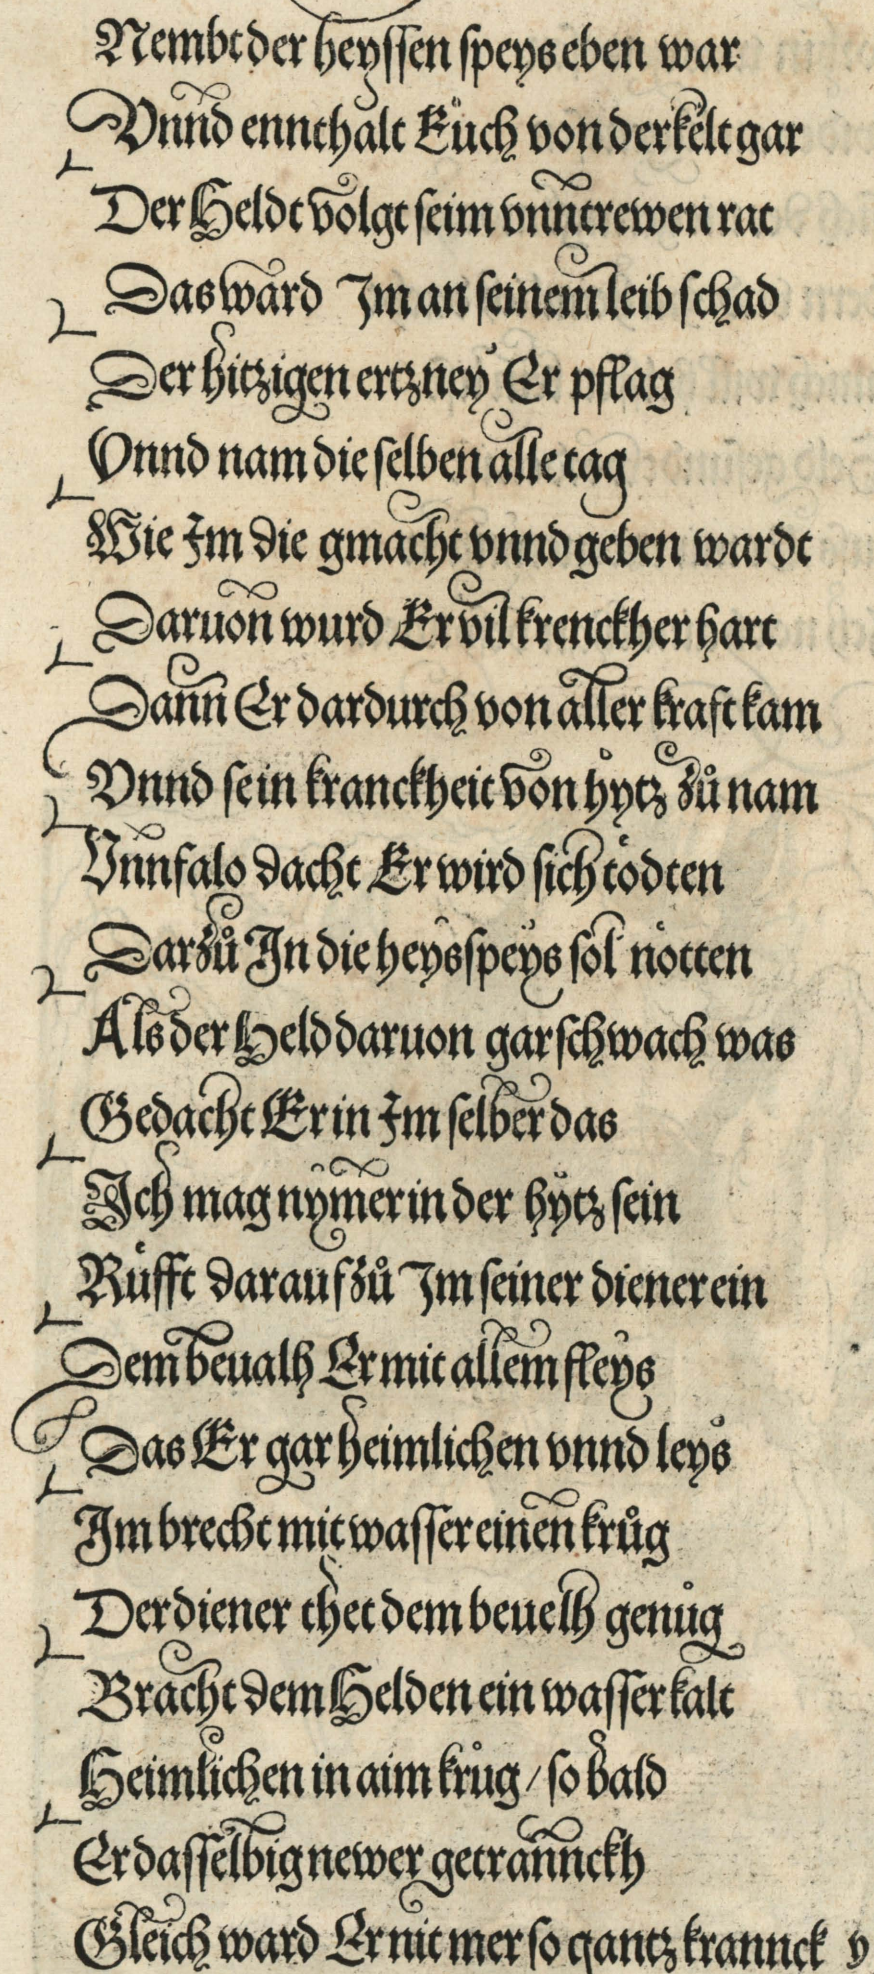 Nembt der heyssen speys eben war
Vnnd ennthalt Eůch von der kelt gar
Der Heldt volgt seim vnntrewen rat
Das ward Im an seinem leib schad
Der hitzigen ertzney Er pflag
Vnnd nam die selben alle tag
Wie Im die gmacht vnnd geben wardt
Daruon wurd Er vil krenckher hart
Dann Er dardurch von aller kraft kam
Vnnd sein kranckheit von hytz zů nam
Vnnfalo dacht Er wird sich tödten
Darzů In die heys speys sol nötten
Als der Held daruon gar schwach was
Gedacht Er in Im selber das
Ich mag nymer in der hytz sein
Rüfft darauf zů Im seiner diener ein
Dem beualh Er mit allem fleys
Das Er gar heimlichen vnnd leys
Im brecht mit wasser einen krůg
Der diener thet dem beuelh genůg
Bracht dem Helden ein wasser kalt
Heimlichen in aim krůg / so bald
Er dasselbig newer getrannckh
Gleich ward Er nit mer so gantz krannck y